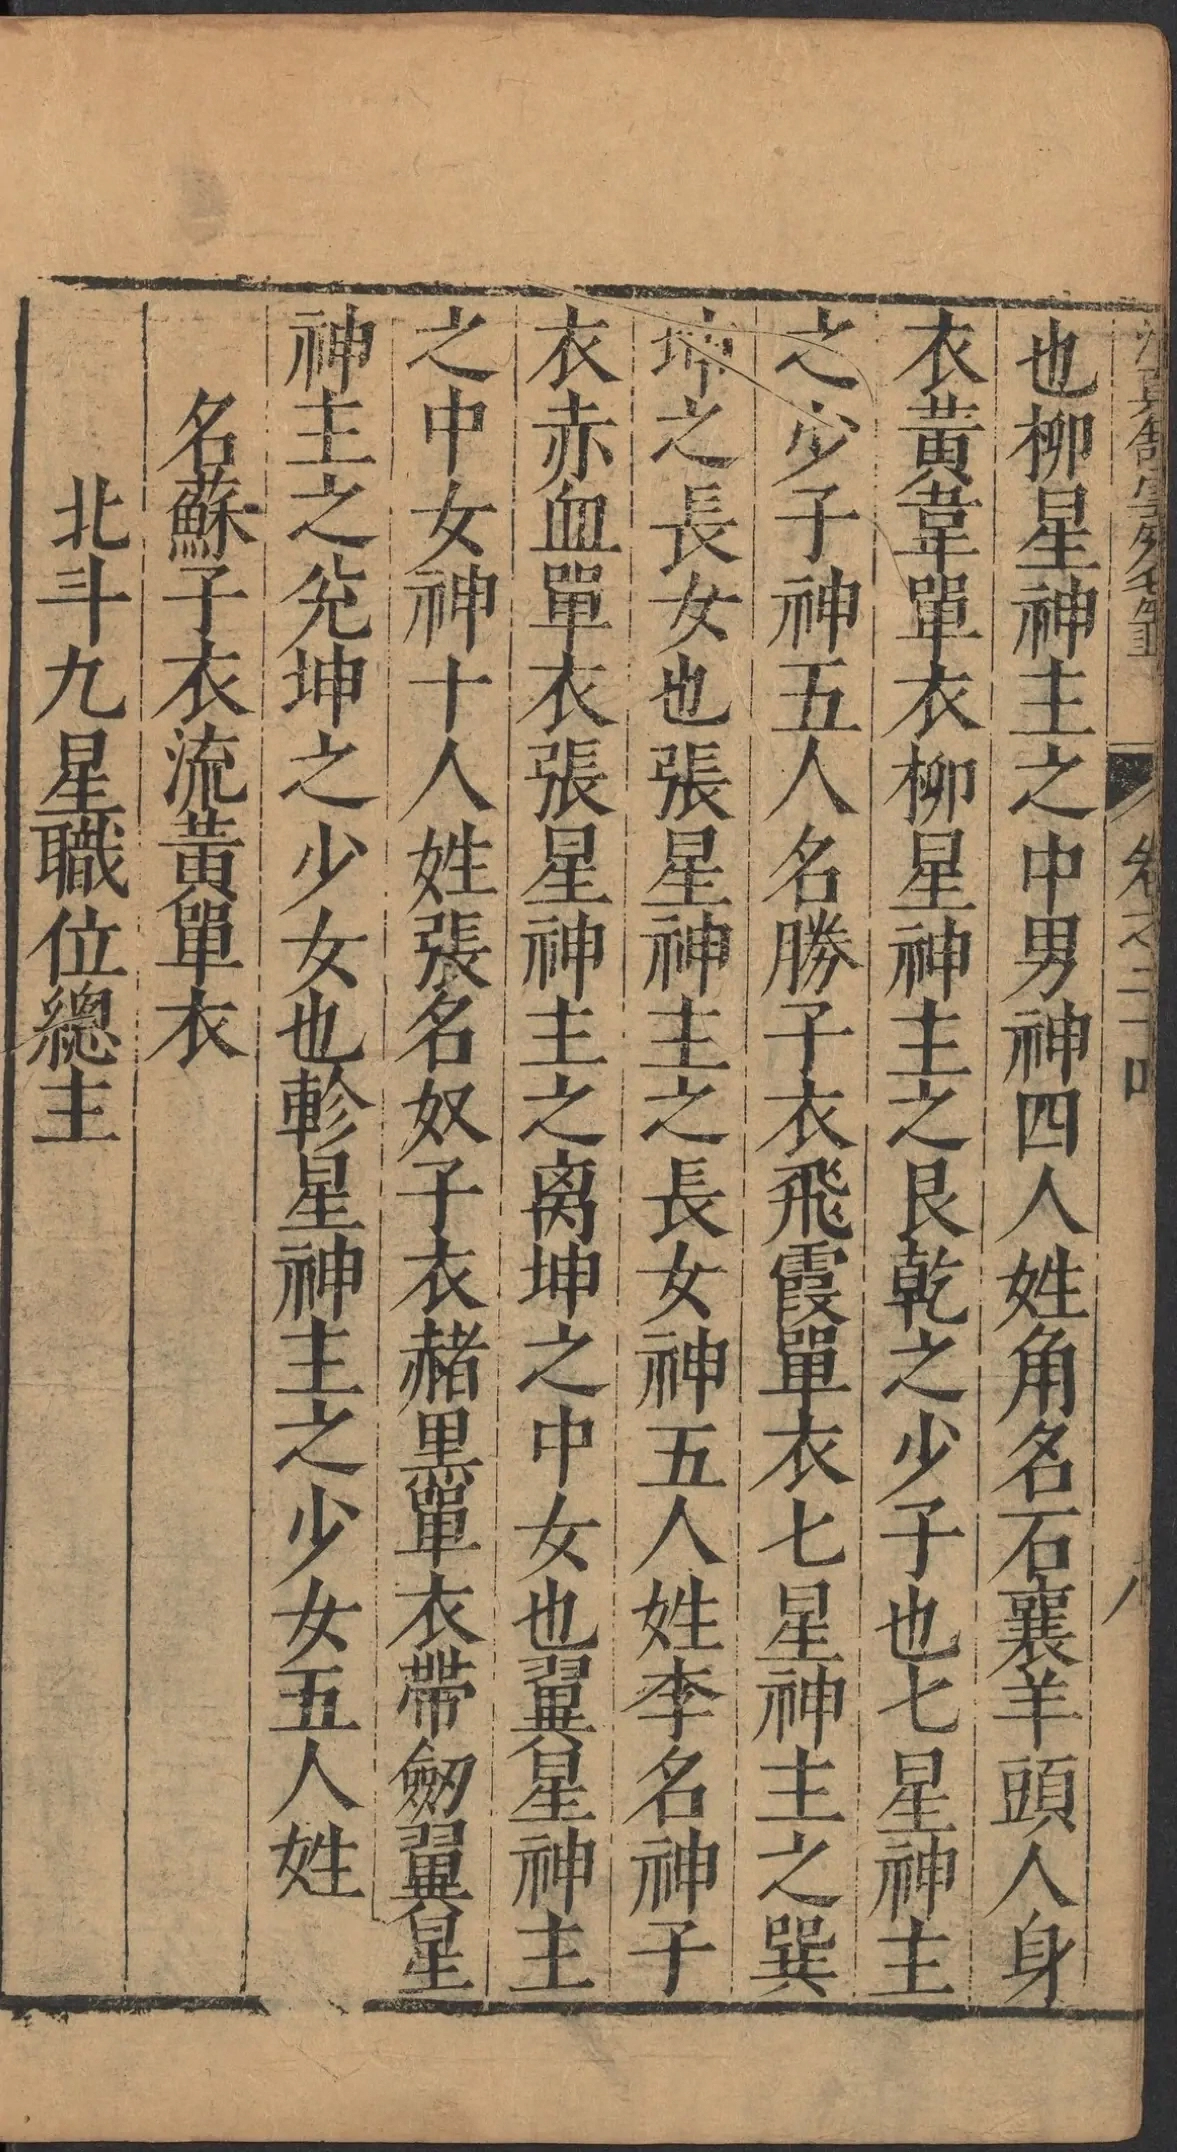 卷之二十四
八
也柳星神主之中男神四人姓角名石襄羊頭人身
衣黃韋單衣柳星神主之艮乾之少子也七星神主
之少子神五人名勝子衣飛霞單衣七星神主之巽
坤之長女也張星神主之長女神五人姓李名神子
衣赤血單衣張星神主之离坤之中女也翼星神主
之中女神十人姓張名奴子衣赭黑單衣帶劒翼星
神主之兊坤之少女也軫星神主之少女五人姓
名蘇子衣流黃單衣
北斗九星職位總主